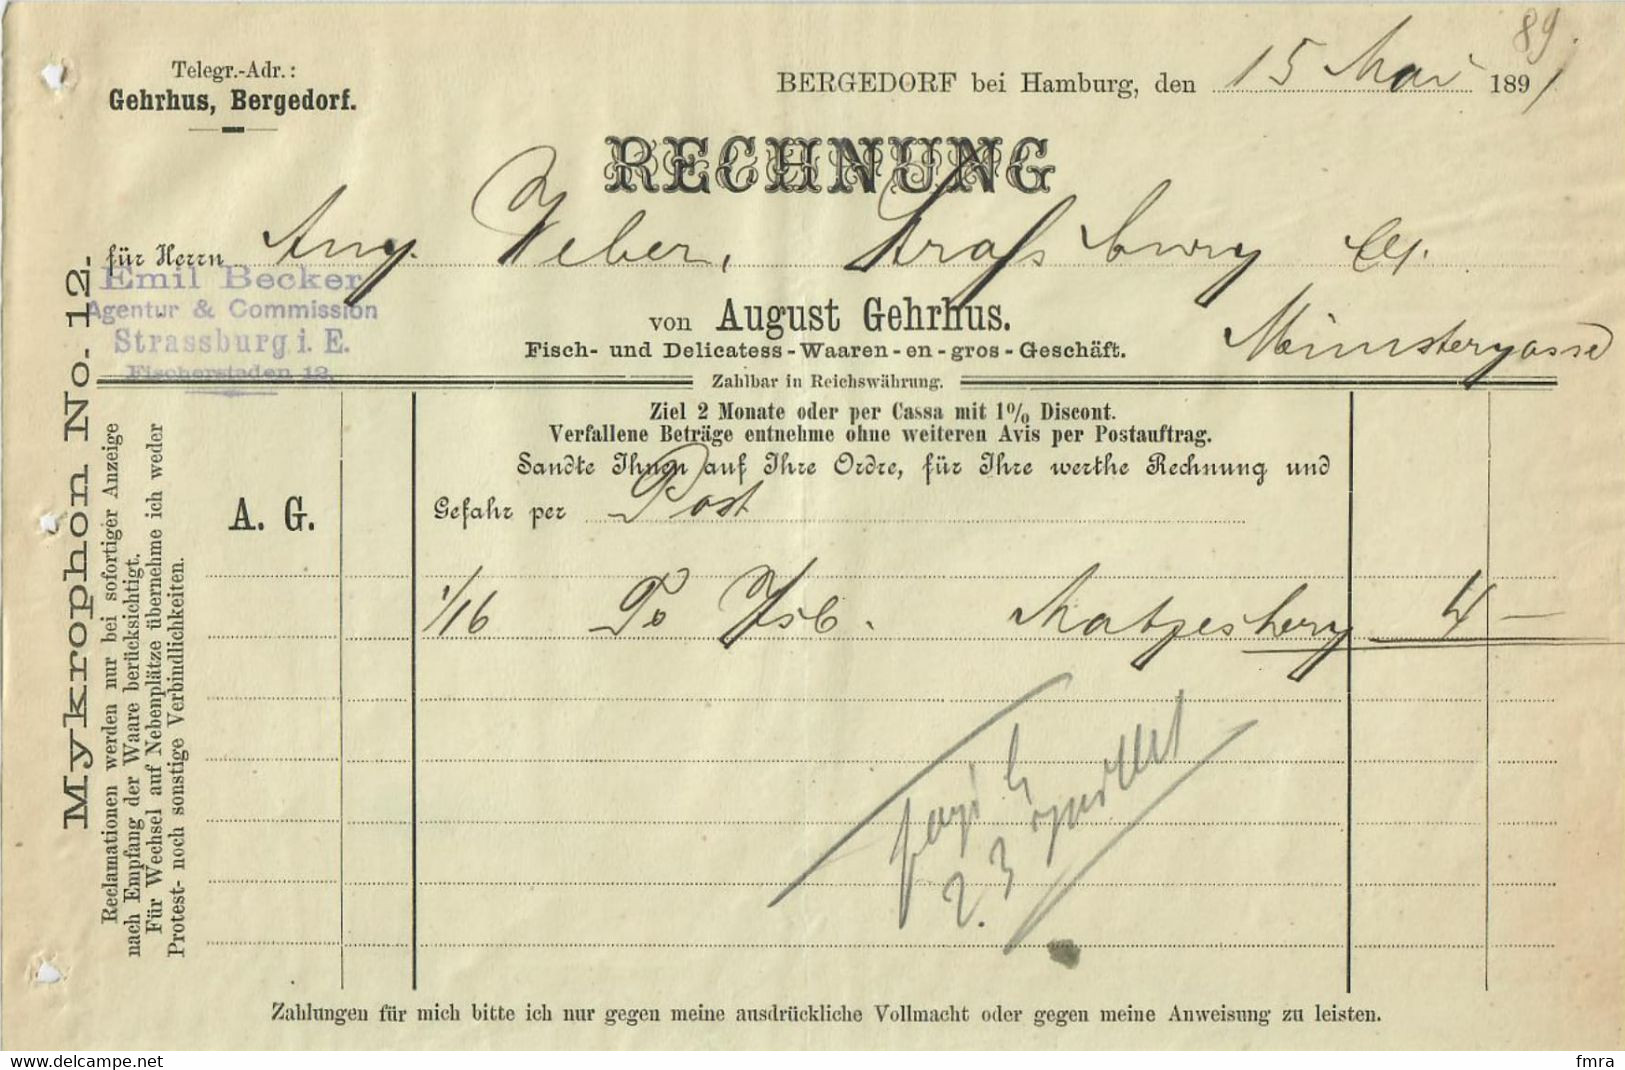 89.
Telegr.-Adr.:
Gehrhus, Bergedorf.
BERGEDORF bei Hamburg, den 15 Mai 1891
RECHNUNG
für Herrn Aug. Weber, Strassburg Els.
Emil Becker
Agentur & Commission
Strassburg i. E.
Fischerstaden 12.
von August Gehrhus.
Münstergasse
Fisch- und Delicatess-Waaren-en-gros-Geschäft.
Zahlbar in Reichswährung.
Ziel 2 Monate oder per Cassa mit 1% Discont.
Verfallene Beträge entnehme ohne weiteren Avis per Postauftrag.
Sandte Ihnen auf Ihre Ordre, für Ihre werthe Rechnung und
A. G.
Gefahr per Post
1/16 To Matjeshery 4 —
Mykrophon No. 12.
Reclamationen werden nur bei sofortiger Anzeige
nach Empfang der Waare berücksichtigt.
Für Wechsel auf Nebenplätze übernehme ich weder
Protest- noch sonstige Verbindlichkeiten.
Zahlungen für mich bitte ich nur gegen meine ausdrückliche Vollmacht oder gegen meine Anweisung zu leisten.
www.delcampe.net
fmra